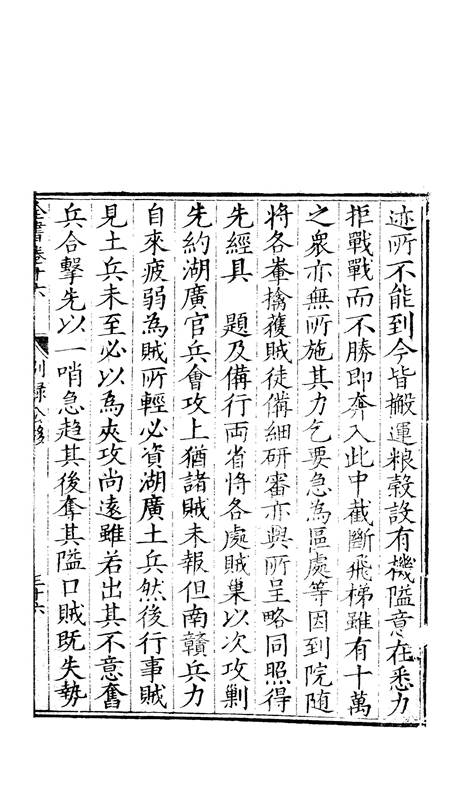 迹所不能到今皆搬運粮榖設有機隘意在悉力
拒戰戰而不勝即奔入此中截斷飛梯雖有十萬
之衆亦無所施其力乞要急為區處等因到院随
將各輋擒獲賊徒備細研審亦與所呈略同照得
先經具　題及備行両省將各處賊巢以次攻剿
先約湖廣官兵會攻上猶諸賊未報但南贛兵力
自來疲弱為賊所輕必資湖廣土兵然後行事賊
見土兵未至必以為夾攻尚遠雖若出其不意奮
兵合擊先以一哨急趋其後奪其隘口賊既失勢
全書卷十六　別録八　三十六